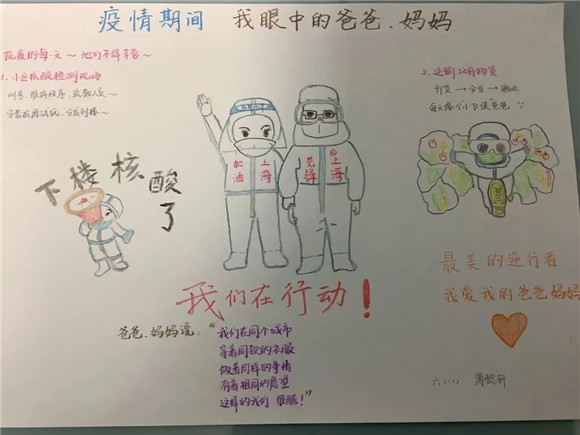 疫情期间 我眼中的爸爸、妈妈
抗疫的每一天～他们不停辛劳～
1.小区核酸检测现场
叫号、维持秩序、
分发抗原试纸、分发到楼～
2.运输所有的物资
卸货 → 分当 → 搬运
每天像个小飞侠爸爸
下楼核酸了
加油
上海
上海
我们在行动！
最美的逆行者
我爱我的爸爸妈妈
爸爸、妈妈说：
"我们在同个城市
穿着同款的衣服
做着同样的事情
有着相同的愿望
这样的我们 很酷！"